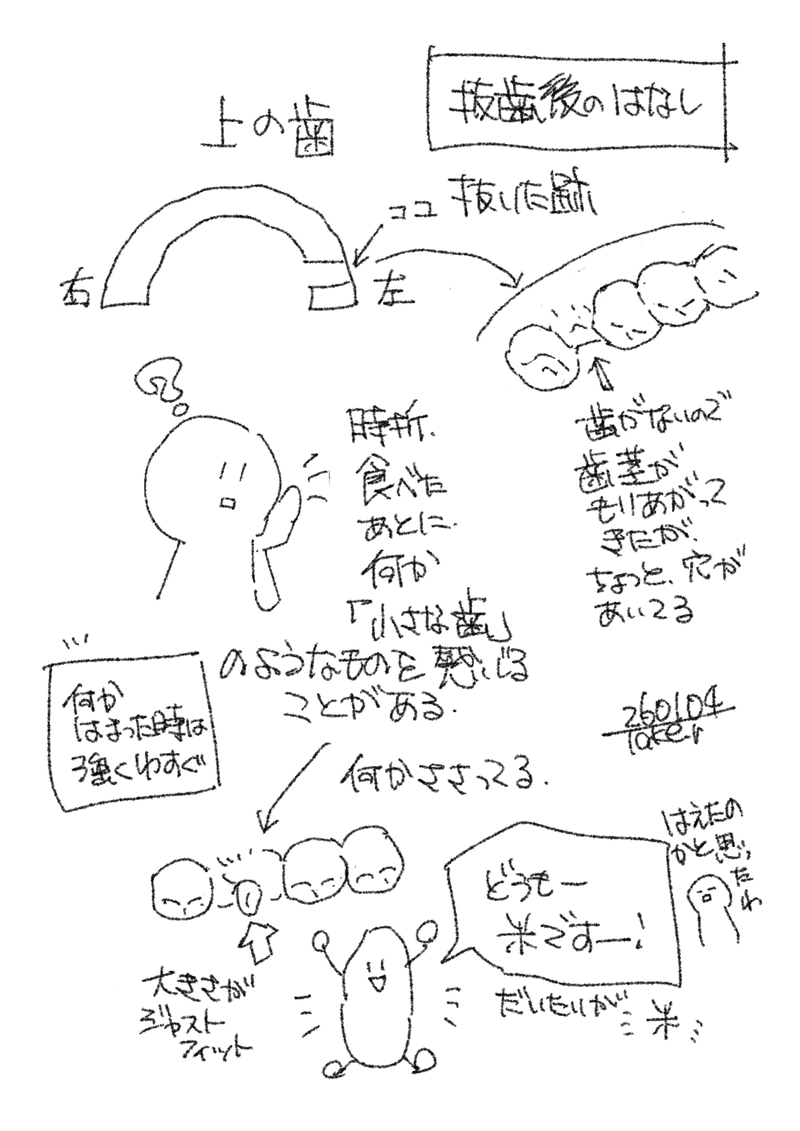 抜歯後のはなし
上の歯
ココ 抜いた跡
右
左
歯がないので
歯茎が
もりあがって
きたが、
ちょっと、穴が
あいてる
時折、
食べた
あとに、
何か
「小さな歯」
のようなものを感じる
ことがある.
何か
はまった時は
強くゆすぐ
260104
Taker
何かささってる.
はえたの
かと思っ
たわ
どうもー
米ですー!
大きさが
ジャスト
フィット
だいたいが
米